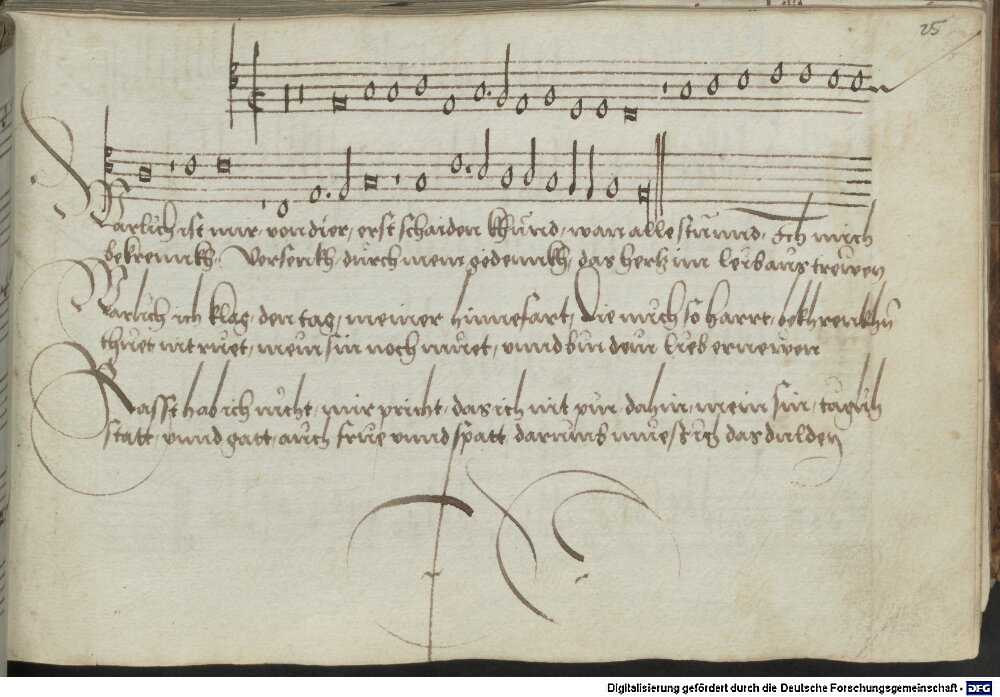 25
Warlich ist mir, von dier, erst schaiden khund, wan alle stund, Ich mich
bekrennkh, Versenkh, durch mein gedennkh, das hertz im leib aus trewen
Warlich ich klag, den tag, meiner hinnefart, Die mich so harrt, bekhrenkhn
thuet nit ruet, mein sin noch muet, unnd bin dein lieb ernewen
Rasst hab ich nicht, mir pricht, das ich nit pin, dahin, mein sin,
statt, unnd gatt, auch frue unnd spatt darumb mues ich das dulden
Digitalisierung gefördert durch die Deutsche Forschungsgemeinschaft - DFG